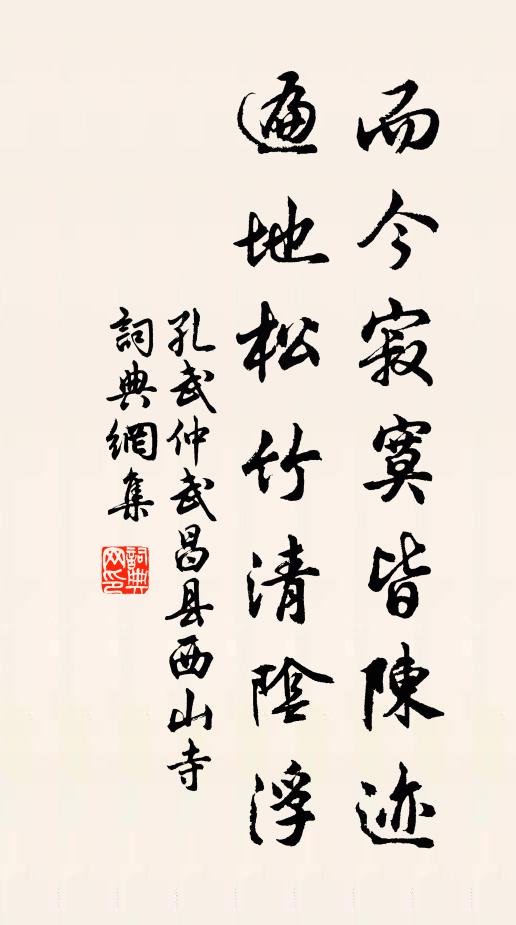 而今寂寞皆陳迹
遍地松竹清陰浮
孔武仲武昌县西山寺
詞典網集
詞典網印